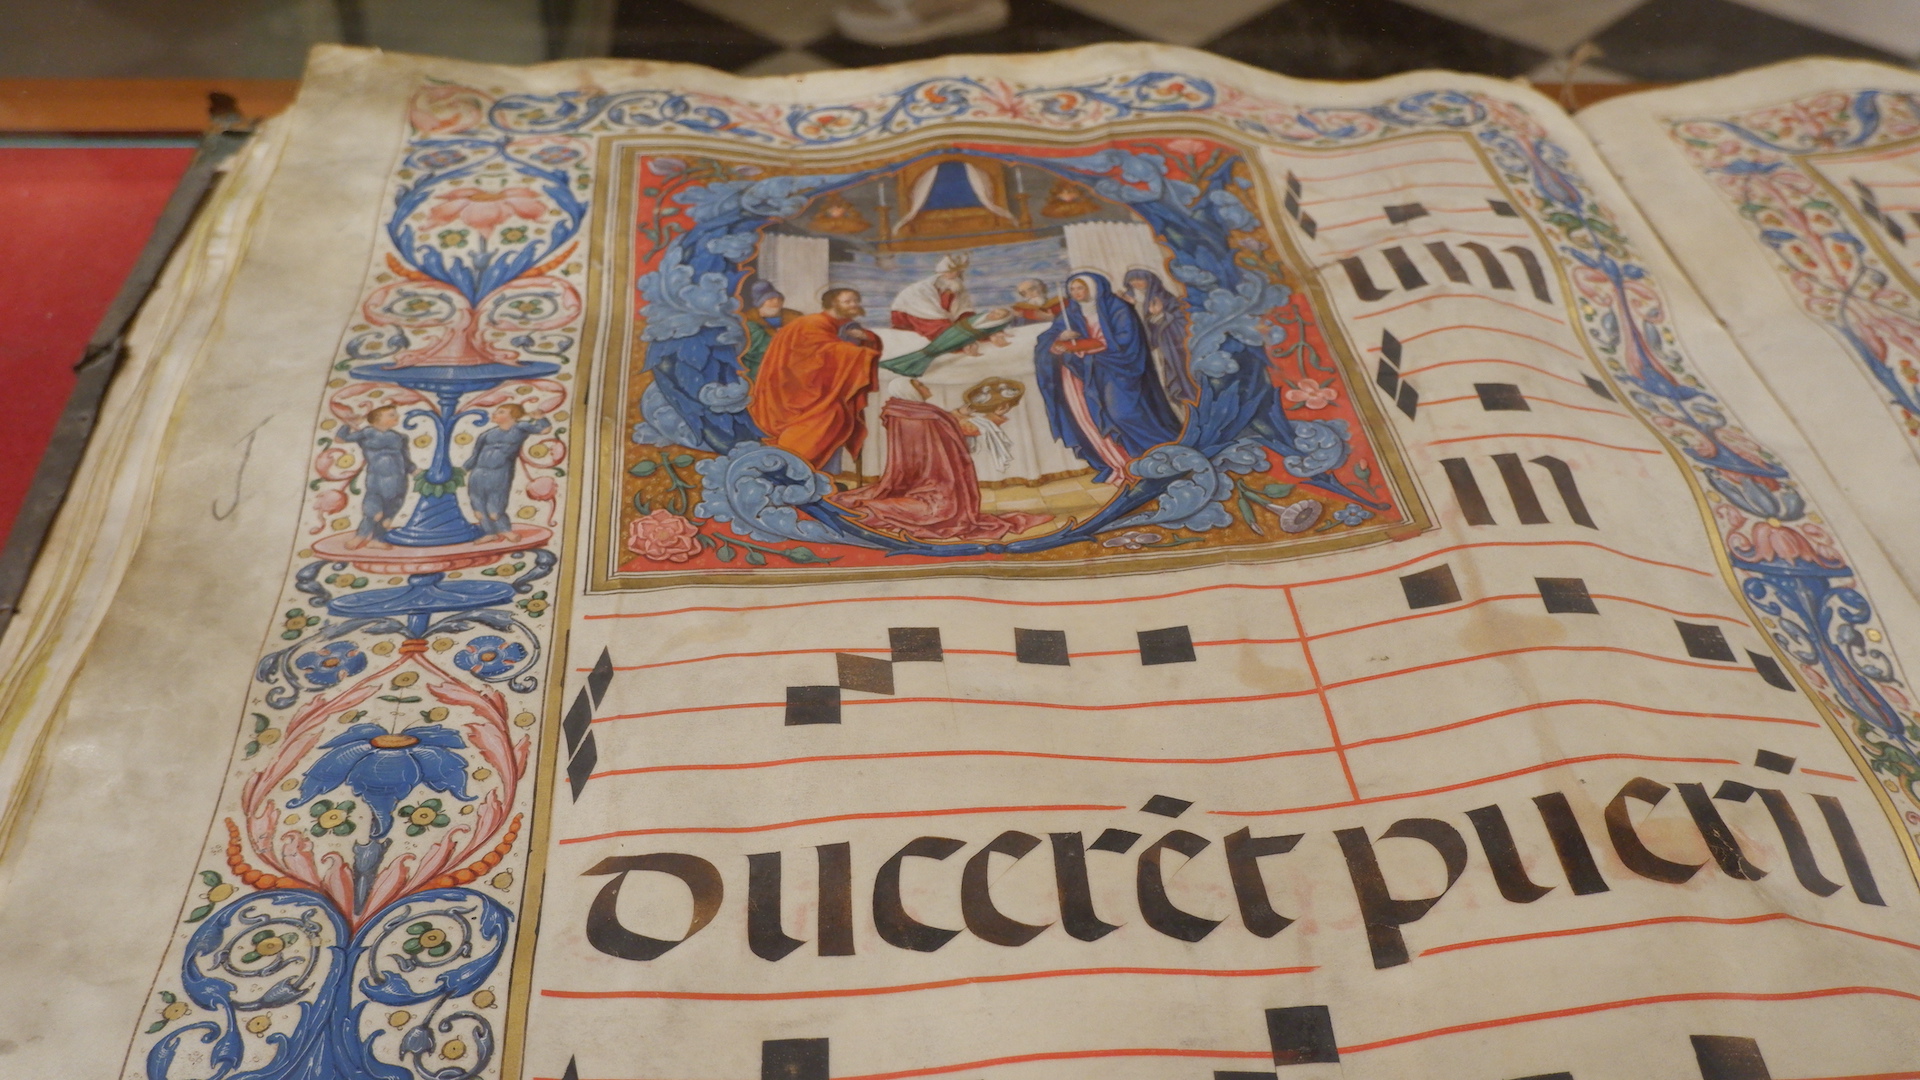 Cum
in
ducerēt puerū